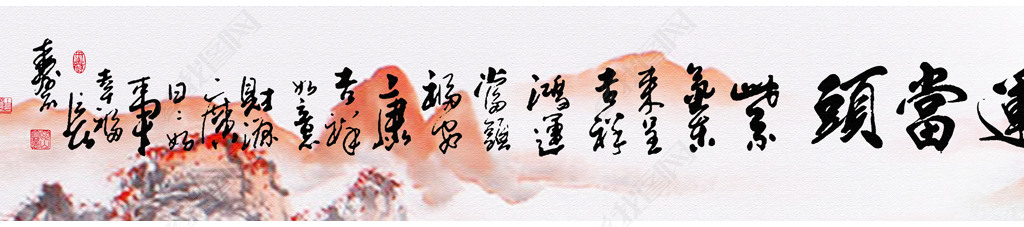 運當頭
紫
氣東
來呈
吉祥
鴻運
當頭
福安
康
吉祥
如意
財源
日日好
幸福
長